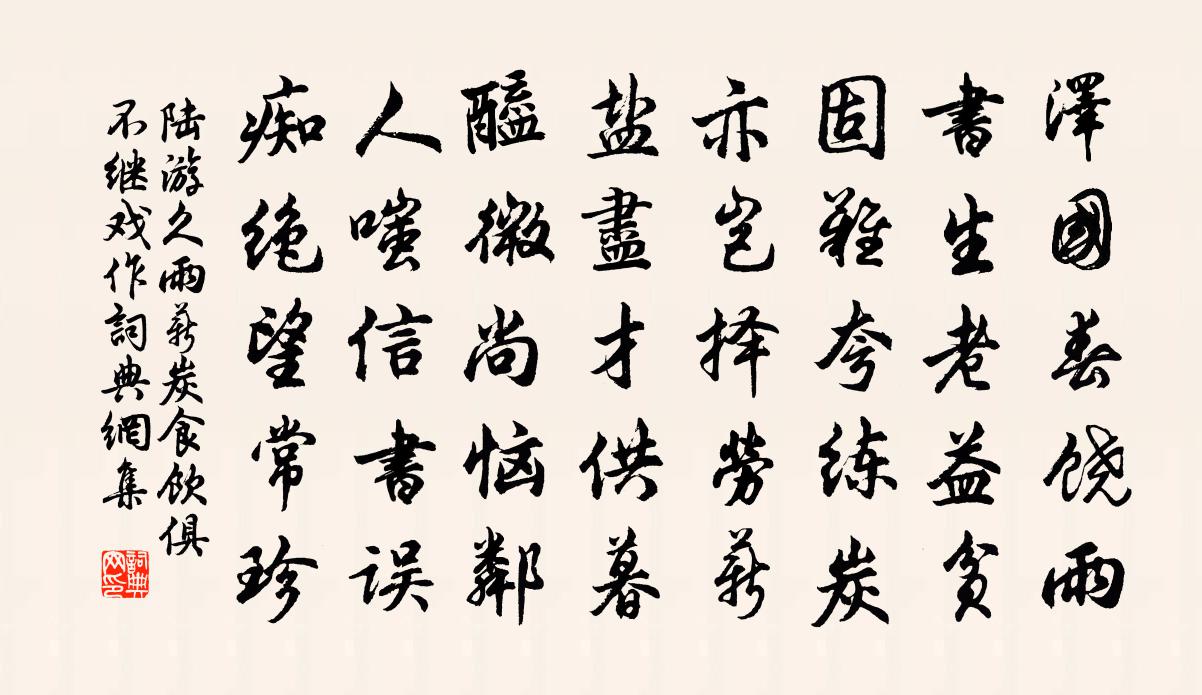 澤國春饶雨
書生老益貧
固難夸练炭
亦岂择勞薪
盐盡才供暮
醯微尚恼鄰
人嗤信書误
痴绝望常珍
陆游久雨薪炭食飲俱
不继戏作詞典網集